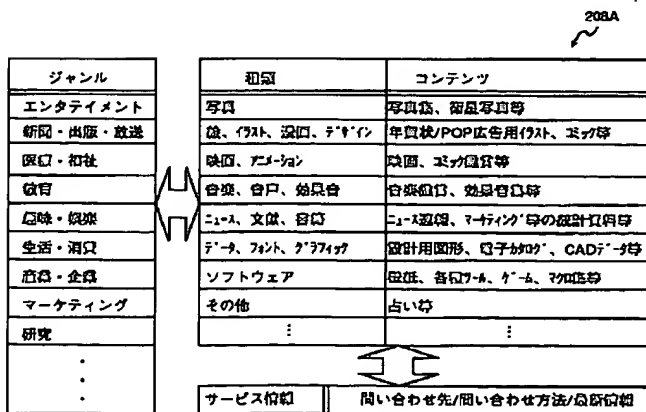 208A
ジャンル
エンタテイメント
新聞・出版・放送
医療・福祉
教育
趣味・娯楽
生活・消費
産業・企業
マーケティング
研究
種類 コンテンツ
写真 写真集、衛星写真等
絵、イラスト、漫画、デザイン 年賀状/POP広告用イラスト、コミック等
映画、アニメーション 映画、コミック
音楽、音声、効果音 音楽、効果音等
ニュース、文献、音 ニュース、マーケティング等の統計資料等
データ、フォント、グラフィック 設計用図形、電子カタログ、CADデータ等
ソフトウェア 各種ツール、ゲーム、マクロ等
その他 占い等
サービス情報 問い合わせ先/問い合わせ方法/最新情報